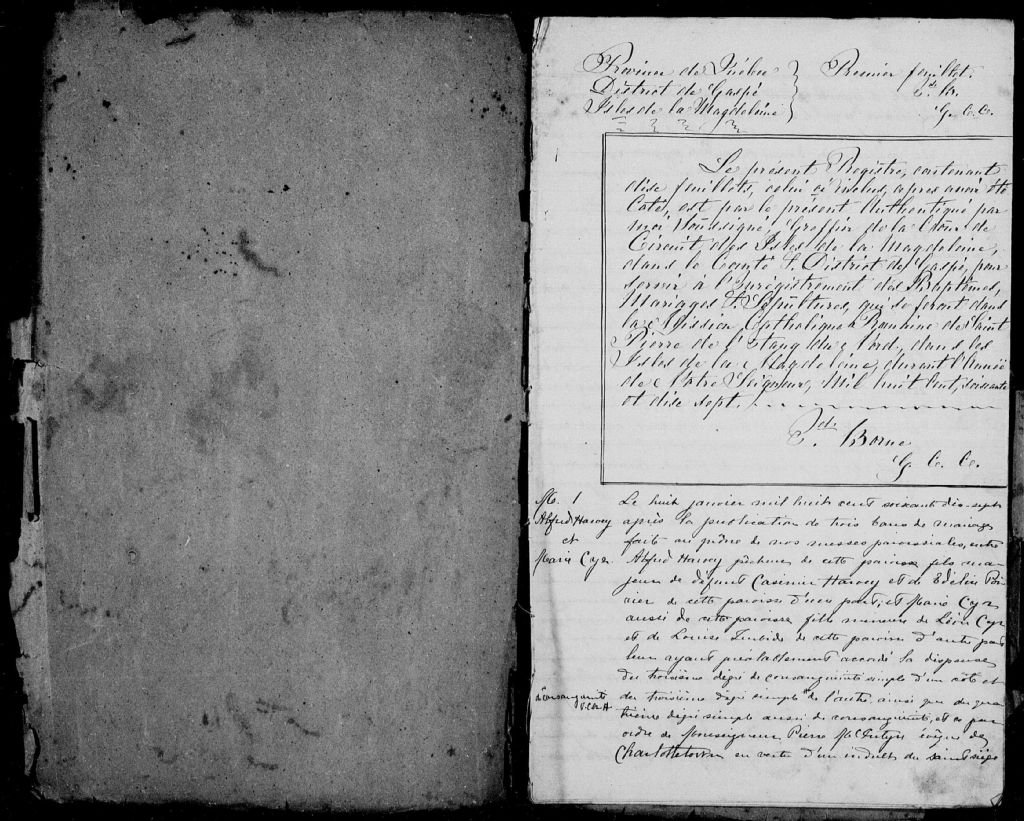 Province de Québec
District de Gaspé
Isles de la Magdeleine
Premier feuillet.
Ed. B.
G. C. C.
Le présent Registre, contenant
dise feuillets, celui ci inclus, apres avoir été
Coté, est par le présent Authentiqué par
moi Soussigné, Greffier de la Cour de
Circuit, des Isles de la Magdeleine,
dans le Comté & District de Gaspé, pour
servir à l'Enrégistrement des Baptêmes,
Mariages & Sépultures, qui se feront dans
la Mission Catholique & Romaine de Saint
Pierre de l'Etang du Nord, dans les
Isles de la Magdeleine, durant l'Année
de Notre Seigneur, Mil huit Cent, soisante
et dise sept.
Ed. Borne
G. C. C.
M. 1
Alfred Harvey
et
Marie Cyr.
Le huit janvier mil huit cent soixante dix-sept
après la publication de trois bans de mariage
faite au prône de nos messes paroissiales, entre
Alfred Harvey pêcheur de cette paroisse fils ma-
jeur de défunt Casimir Harvey et de Edélie Poi-
rier de cette paroisse d'une part; et Marie Cyr
aussi de cette paroisse fille mineure de Léon Cyr
et de Louise Turbide de cette paroisse d'autre part
leur ayant préalablement accordé la dispense
du troisième degré de consanguinité simple d'un côté et
du troisième degré simple de l'autre, ainsi que du qua
trième degré simple aussi de consanguinité, et ce par
ordre de Monseigneur Pierre McIntyre évêque de
Charlottetown en vertu d'un indult du saint siège
Consanguinité